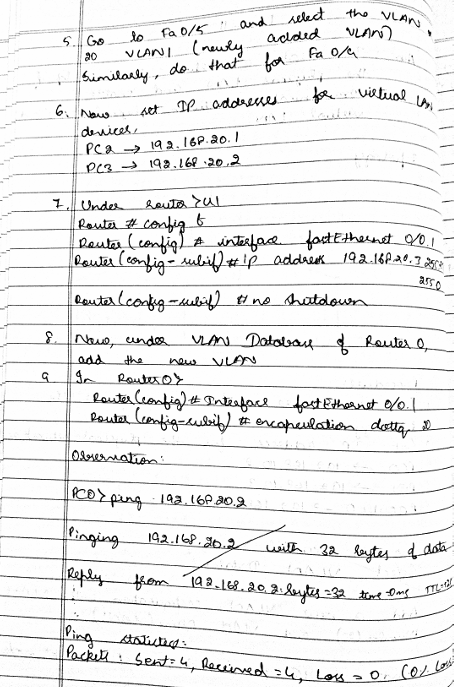 5. Go to Fa0/5 and select the VLAN,
20 VLAN1 (newly added VLAN)
Similarly, do that for Fa0/4
6. Now set IP addresses for virtual LAN
devices,
PC2 → 192.168.20.1
PC3 → 192.168.20.2
7. Under router > CLI
Router # config t
Router (config) # interface fastEthernet 0/0.1
Router (config-subif) # ip address 192.168.20.3 255
255.0
Router (config-subif) # no shutdown
8. Now, under VLAN Database of Router 0,
add the new VLAN
9 In Router0>
Router(config)# Interface fastEthernet 0/0.1
Router (config-subif) # encapsulation dot1q 20
Observation:
PC0> ping 192.168.20.2
Pinging 192.168.20.2 with 32 bytes of data
Reply from 192.168.20.2: bytes=32 time=0ms
Ping statistics:
Packets: Sent=4, Received=4, Loss=0. (0% Loss